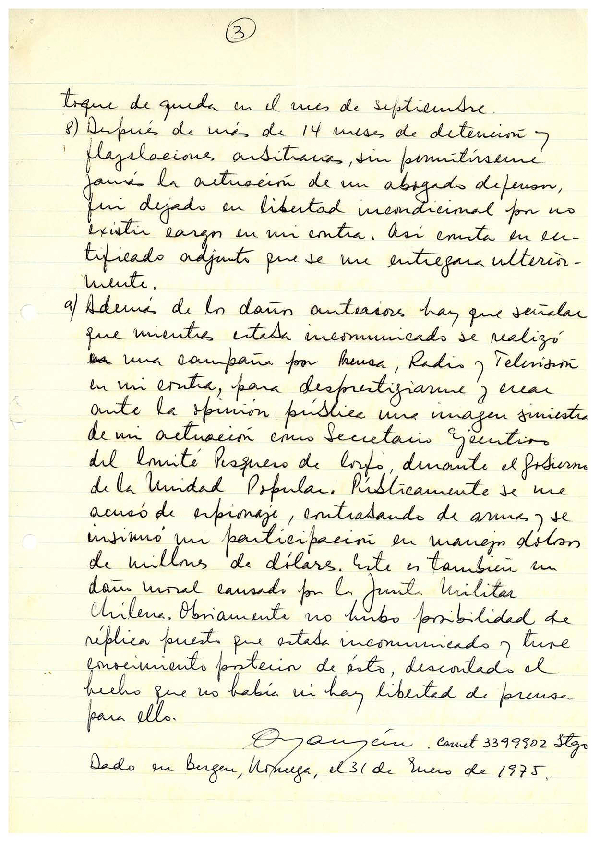 3
toque de queda en el mes de septiembre.
8) Después de más de 14 meses de detención y
flagelaciones arbitrarias, sin permitírseme
jamás la actuación de un abogado defensor,
fui dejado en libertad incondicional por no
existir cargos en mi contra. Así consta en cer-
tificado adjunto que se me entregara ulterior-
mente.
9) Además de los daños anteriores hay que señalar
que mientras estaba incomunicado se realizó
una campaña por Prensa, Radio y Televisión
en mi contra, para desprestigiarme y crear
ante la opinión pública una imagen siniestra
de mi actuación como Secretario Ejecutivo
del Comité Pesquero de Corfo, durante el Gobierno
de la Unidad Popular. Públicamente se me
acusó de espionaje, contrabando de armas y se
insinuó mi participación en manejos dolosos
de millones de dólares. Este es también un
daño moral causado por la Junta Militar
Chilena. Obviamente no hubo posibilidad de
réplica puesto que estaba incomunicado y tuve
conocimiento posterior de ésto, descontado el
hecho que no había ni hay libertad de prensa
para ello.
carnet 3399902 Stgo
Dado en Bergen, Noruega, el 31 de Enero de 1975.